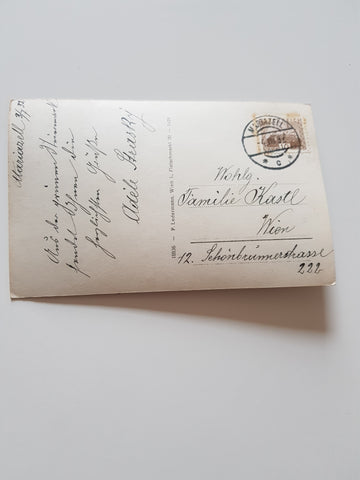 Mariazell
Aus der grünen Steiermark
sendet Ihnen die
herzlichsten Grüße
Adele
11836 - P. Ledermann, Wien I., Fleischmarkt
MARIAZELL
Wohlg.
Familie Kastl
Wien
12. Schönbrunnerstrasse
222